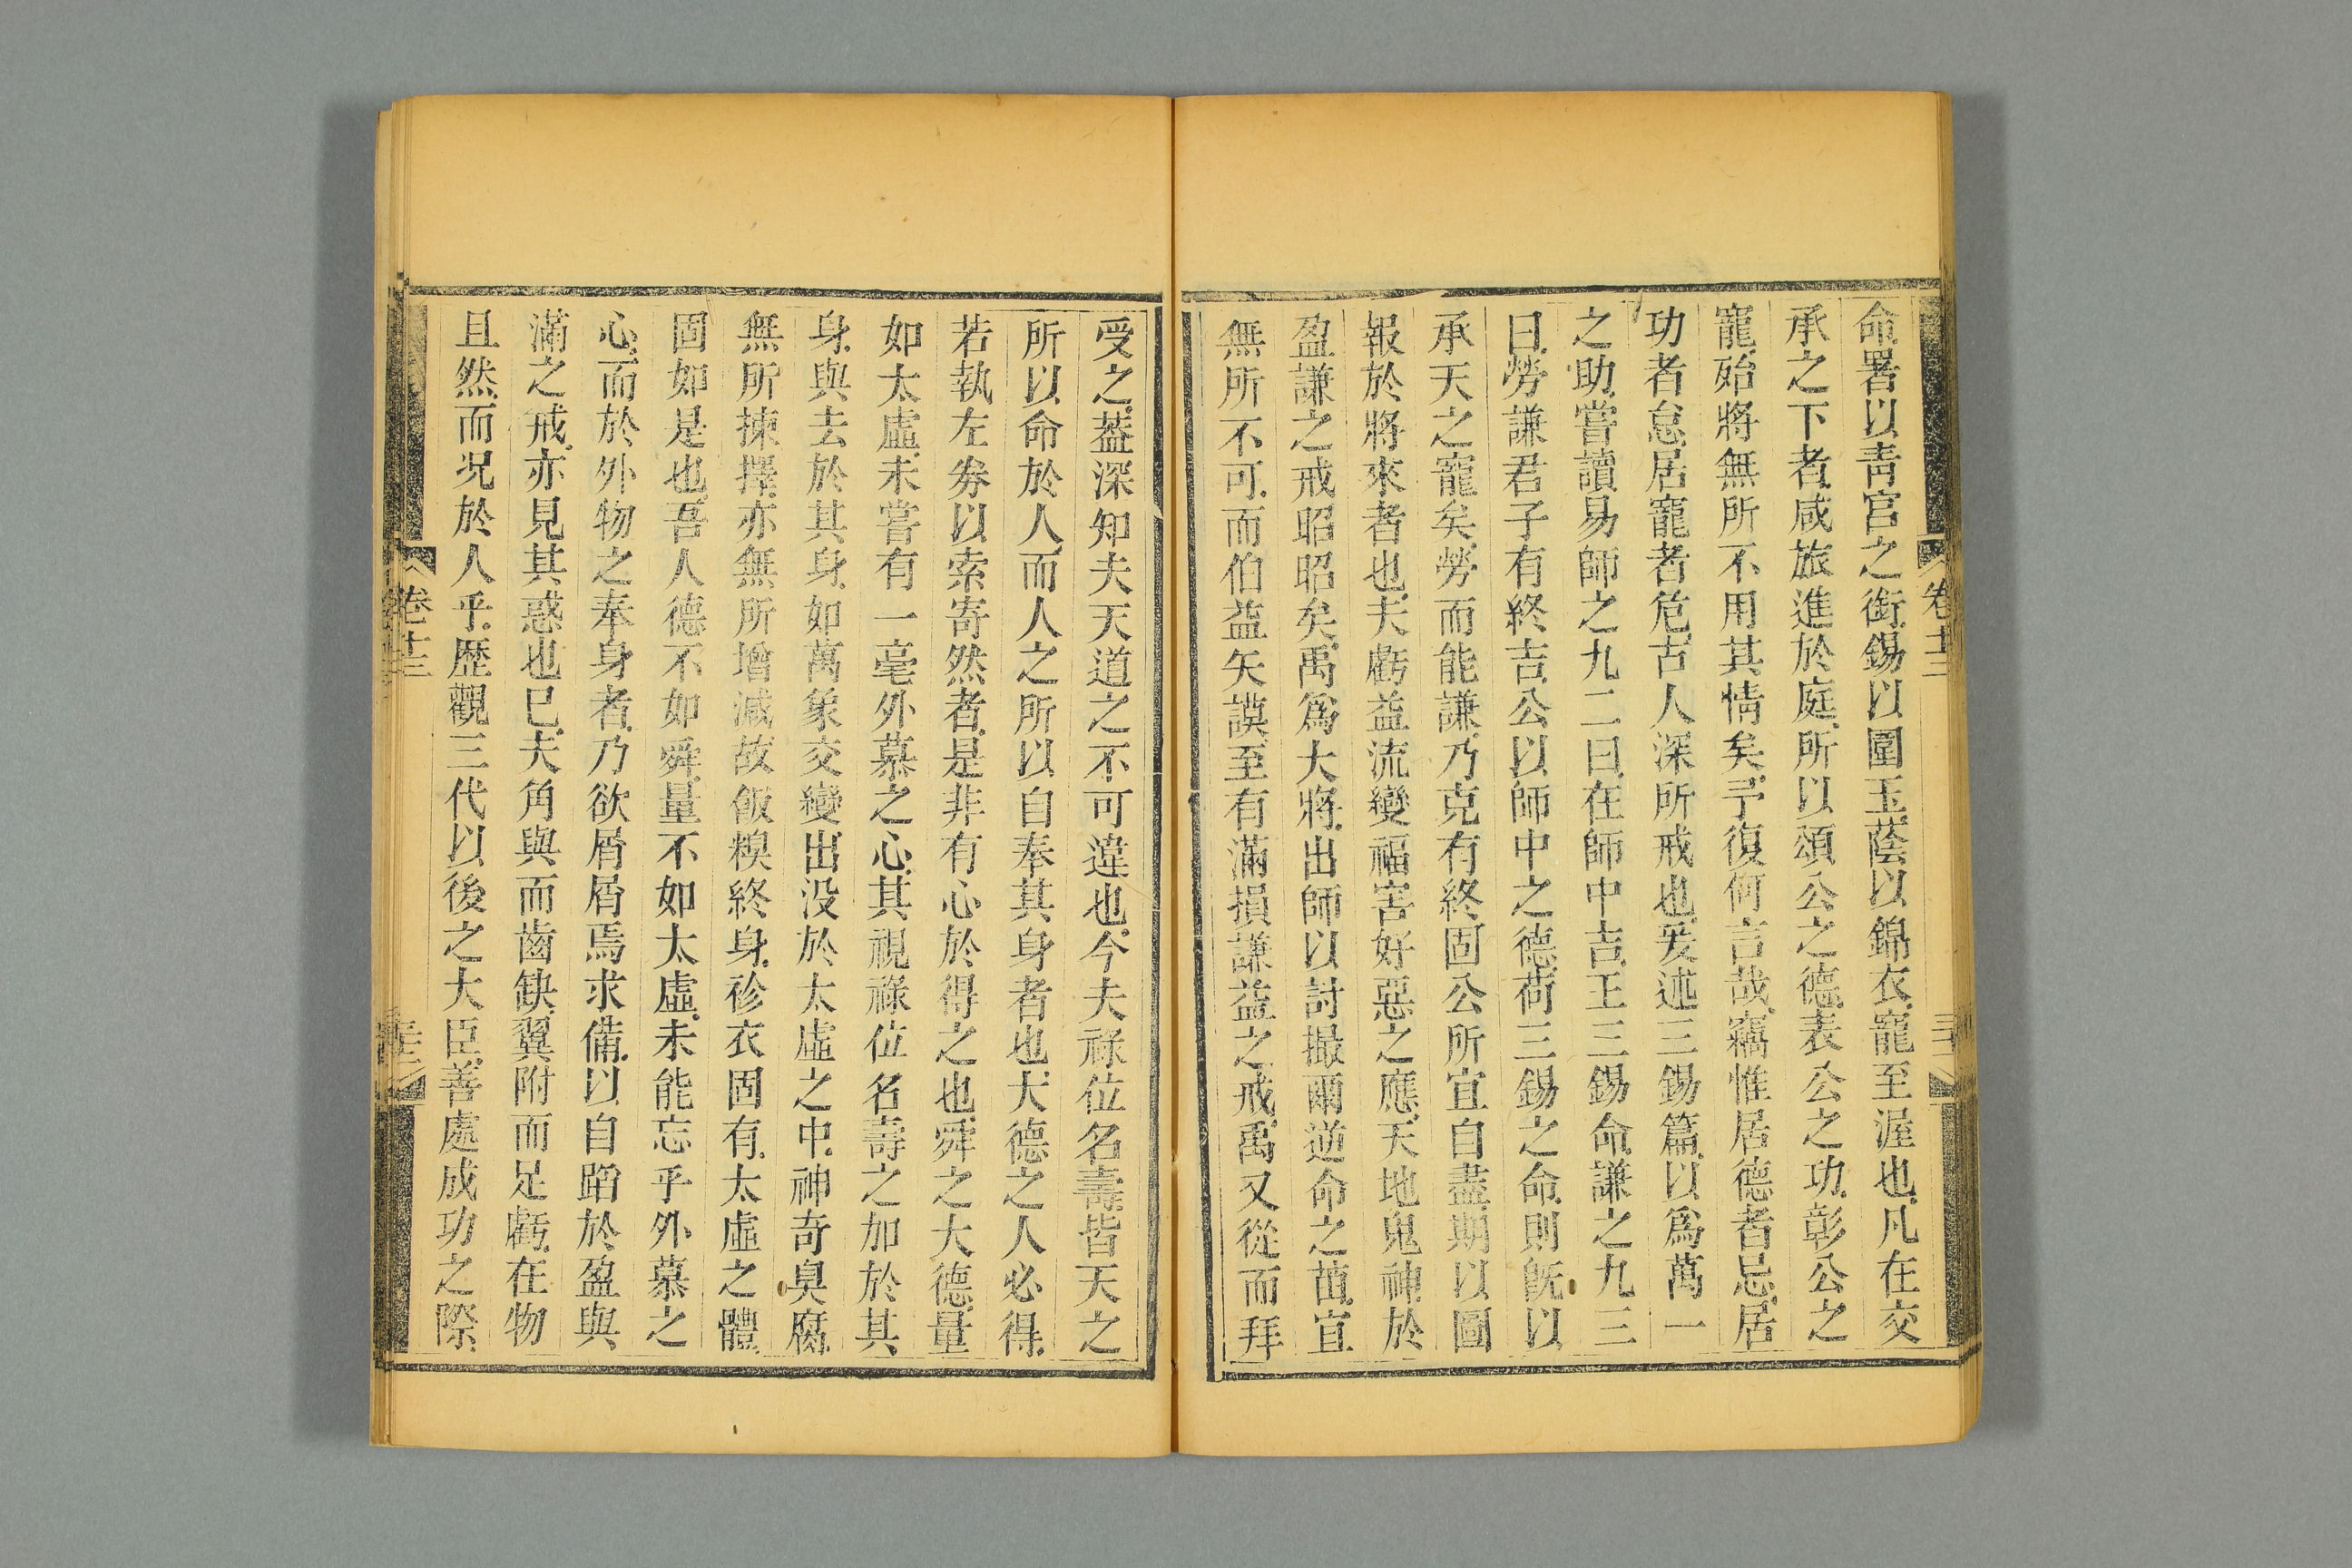 命署以靑宮之銜錫以圍玉蔭以錦衣寵至渥也凡在交
承之下者咸旅進於庭所以頌公之德表公之功彰公之
寵殆將無所不用其情矣予復何言哉竊惟居德者忌居
功者怠居寵者危古人深所戒也爰述三錫篇以爲萬一
之助嘗讀易師之九二曰在師中吉王三錫命謙之九三
曰勞謙君子有終吉公以師中之德荷三錫之命則旣以
承天之寵矣勞而能謙乃克有終固公所宜自盡期以圖
報於將來者也夫虧益流變福害好惡之應天地鬼神於
盈謙之戒昭昭矣禹爲大將出師以討撮爾逆命之苗宜
無所不可而伯益矢謨至有滿損謙益之戒禹又從而拜
受之葢深知夫天道之不可違也今夫祿位名壽皆天之
所以命於人而人之所以自奉其身者也大德之人必得
若執左券以索寄然者是非有心於得之也舜之大德量
如太虛未嘗有一毫外慕之心其視祿位名壽之加於其
身與去於其身如萬象交變出没於太虛之中神奇臭腐
無所揀擇亦無所增減故飯糗終身袗衣固有太虛之體
固如是也吾人德不如舜量不如太虛未能忘乎外慕之
心而於外物之奉身者乃欲屑屑焉求備以自蹈於盈與
滿之戒亦見其惑也已夫角與而齒缺翼附而足虧在物
且然而况於人乎歷觀三代以後之大臣善處成功之際
卷十三
三十二
卷十三